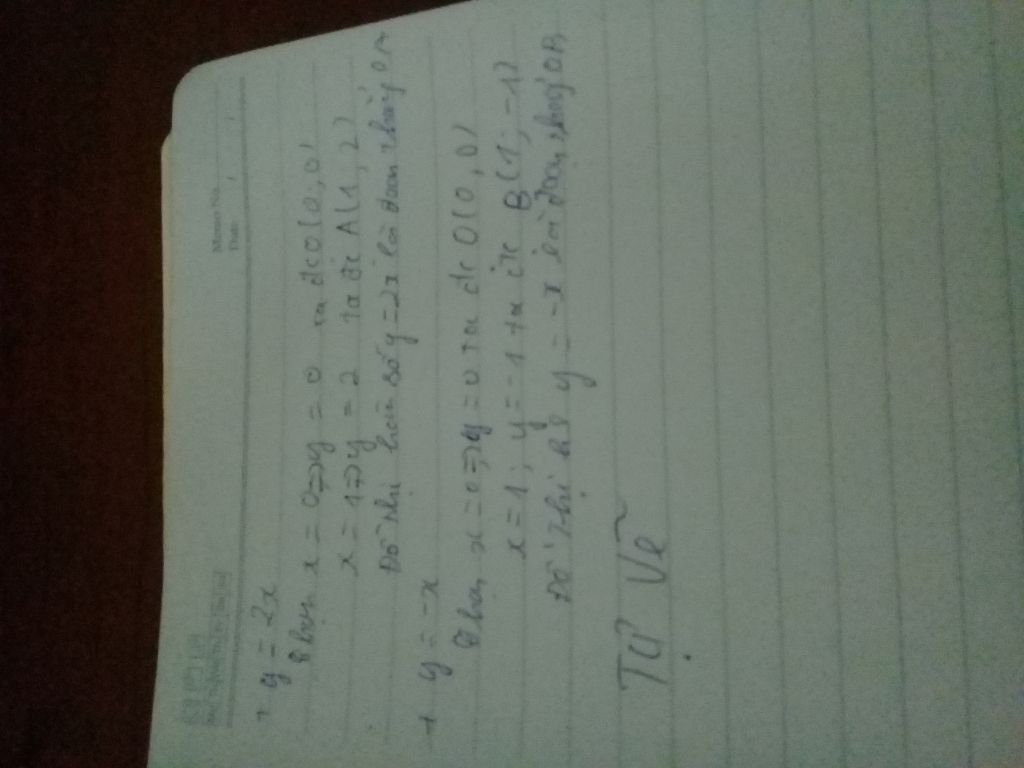 Memo No.
Date
+ y = 2x
chọn x = 0 => y = 0 ta đc O(0,0)
x = 1 => y = 2 ta đc A(1,2)
Đồ thị hàm số y = 2x là đoạn thẳng OA
+ y = -x
chọn x = 0 => y = 0 ta đc O(0,0)
x = 1; y = -1 ta đc B(1;-1)
Đồ thị hs y = -x là đoạn thẳng OB
Tự Vẽ